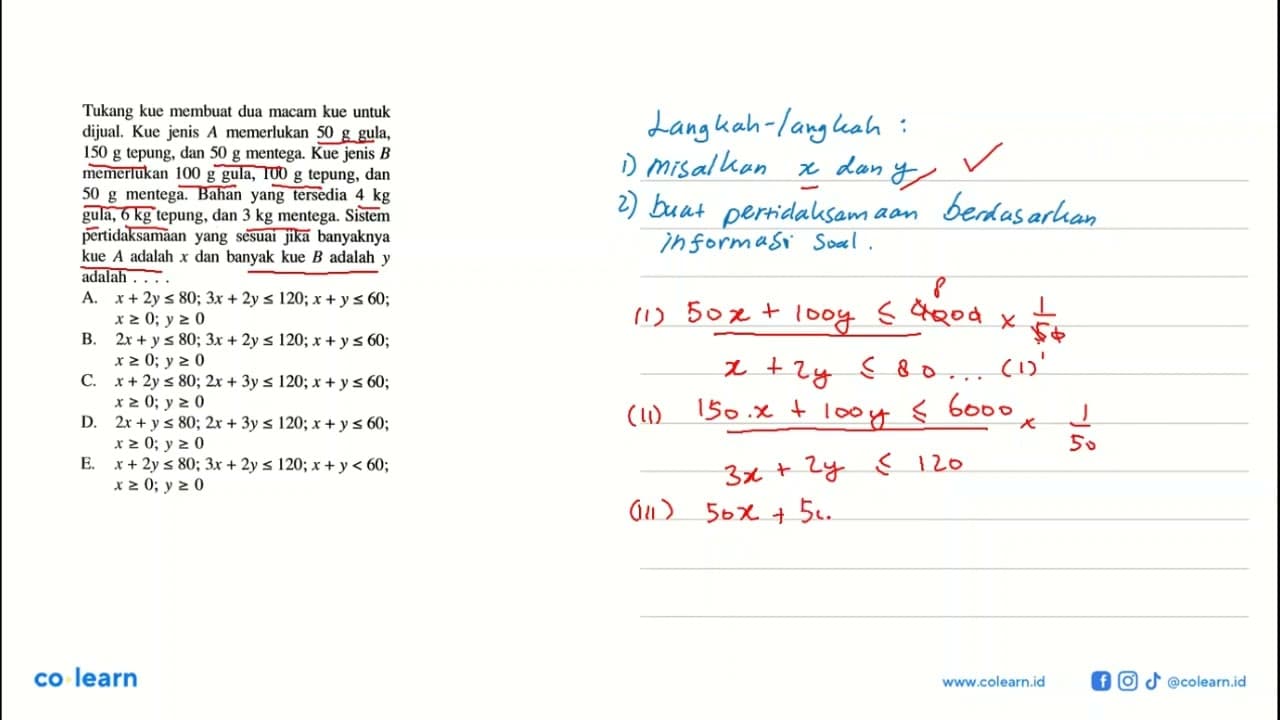 Tukang kue membuat dua macam kue untuk
dijual. Kue jenis A memerlukan 50 g gula,
150 g tepung, dan 50 g mentega. Kue jenis B
memerlukan 100 g gula, 100 g tepung, dan
50 g mentega. Bahan yang tersedia 4 kg
gula, 6 kg tepung, dan 3 kg mentega. Sistem
pertidaksamaan yang sesuai jika banyaknya
kue A adalah x dan banyak kue B adalah y
adalah . . . .
A. x + 2y ≤ 80; 3x + 2y ≤ 120; x + y ≤ 60;
x ≥ 0; y ≥ 0
B. 2x + y ≤ 80; 3x + 2y ≤ 120; x + y ≤ 60;
x ≥ 0; y ≥ 0
C. x + 2y ≤ 80; 2x + 3y ≤ 120; x + y ≤ 60;
x ≥ 0; y ≥ 0
D. 2x + y ≤ 80; 2x + 3y ≤ 120; x + y ≤ 60;
x ≥ 0; y ≥ 0
E. x + 2y ≤ 80; 3x + 2y ≤ 120; x + y < 60;
x ≥ 0; y ≥ 0
Langkah-langkah :
1) misalkan x dan y ✓
2) buat pertidaksamaan berdasarkan
informasi soal.
(I) 50x + 100y ≤ 4000 × 1/50
x + 2y ≤ 80 ... (1)
(II) 150.x + 100y ≤ 6000 × 1/50
3x + 2y ≤ 120
(III) 50x + 5
co learn
www.colearn.id
@colearn.id